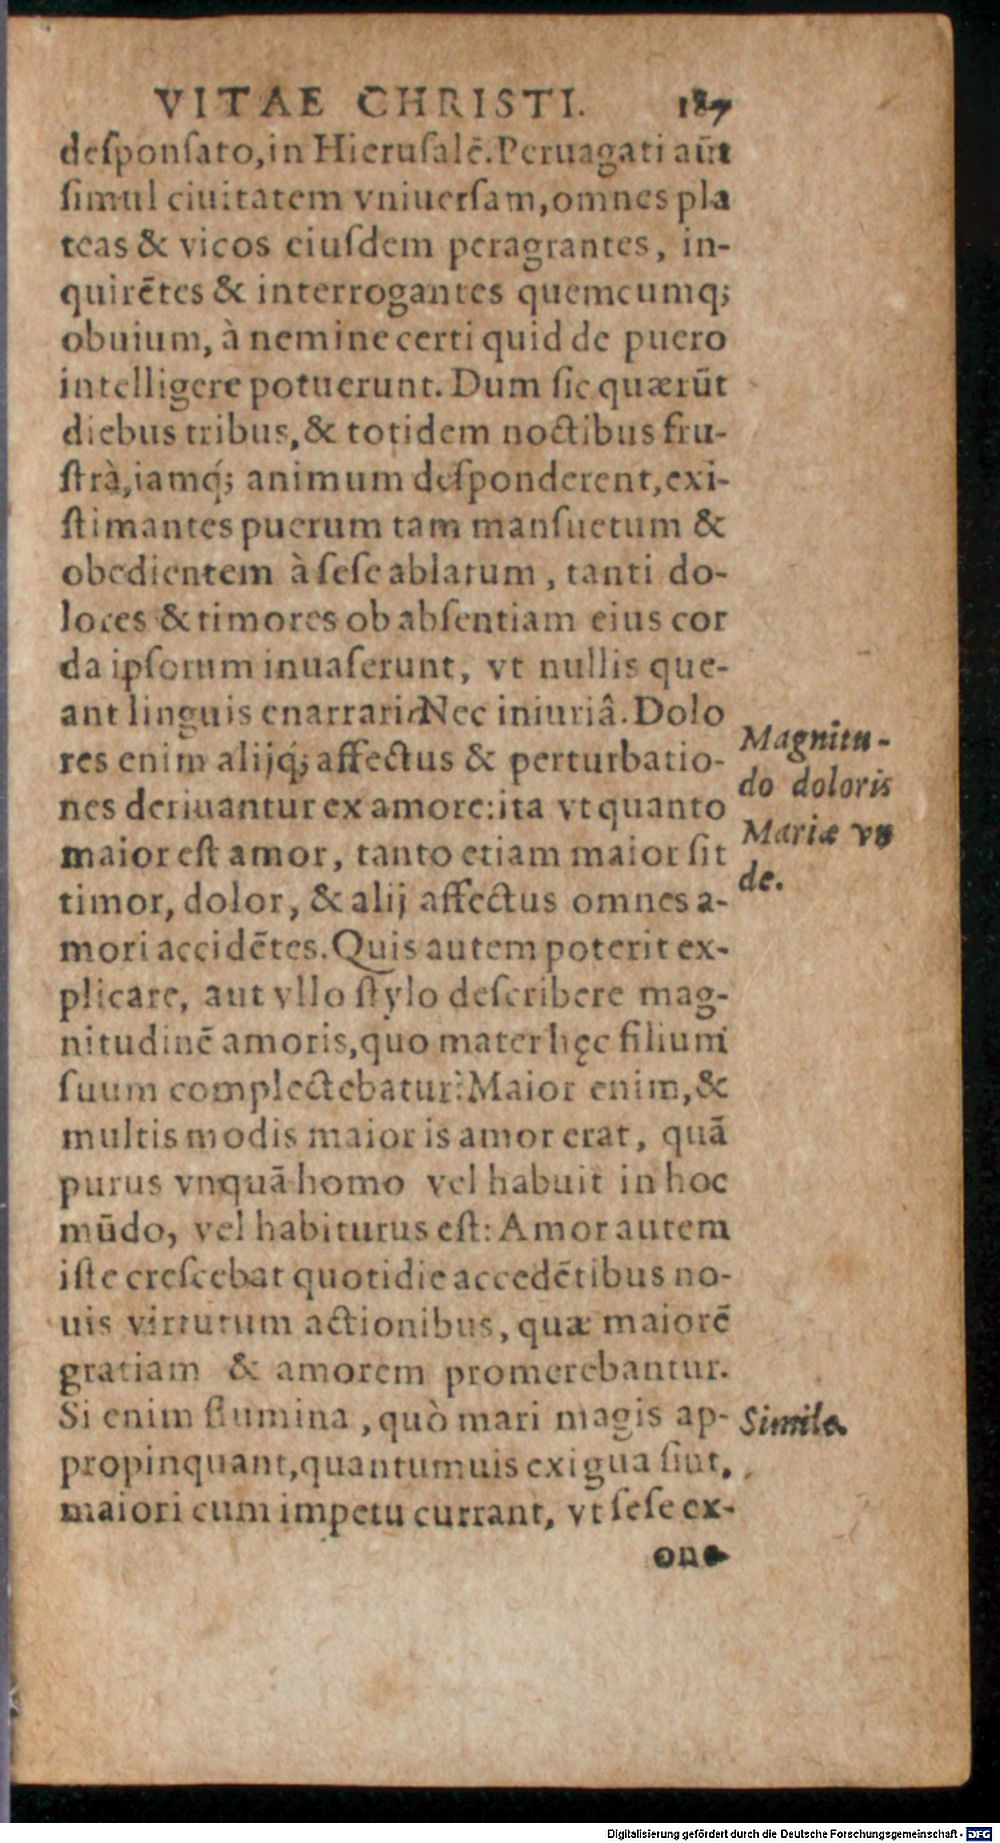 VITAE CHRISTI. 187
desponsato, in Hierusalē. Peruagati aūt
simul ciuitatem vniuersam, omnes pla
teas & vicos eiusdem peragrantes, in-
quirētes & interrogantes quemcumq;
obuium, à nemine certi quid de puero
intelligere potuerunt. Dum sic quærūt
diebus tribus, & totidem noctibus fru-
strà, iamq́; animum desponderent, exi-
stimantes puerum tam mansuetum &
obedientem à sese ablatum, tanti do-
lores & timores ob absentiam eius cor
da ipsorum inuaserunt, vt nullis que-
ant linguis enarrari. Nec iniuriâ. Dolo
res enim alijq́; affectus & perturbatio-
nes deriuantur ex amore: ita vt quanto
maior est amor, tanto etiam maior sit
timor, dolor, & alij affectus omnes a-
mori accidētes. Quis autem poterit ex-
plicare, aut vllo stylo describere mag-
nitudinē amoris, quo mater hęc filium
suum complectebatur? Maior enim, &
multis modis maior is amor erat, quā
purus vnquā homo vel habuit in hoc
mūdo, vel habiturus est: Amor autem
iste crescebat quotidie accedētibus no-
uis virtutum actionibus, quæ maiorē
gratiam & amorem promerebantur.
Si enim flumina, quò mari magis ap-
propinquant, quantumuis exigua sint,
maiori cum impetu currant, vt sese ex-
one
Magnitu-
do doloris
Mariæ vn
de.
Simile.
Digitalisierung gefördert durch die Deutsche Forschungsgemeinschaft - DFG